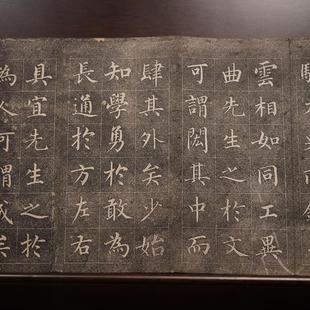 雲相如同工異
曲先生之於文
可謂閎其中而
肆其外矣少始
知學勇於敢為
長通於方左右
具宜先生之於
為人可謂成矣